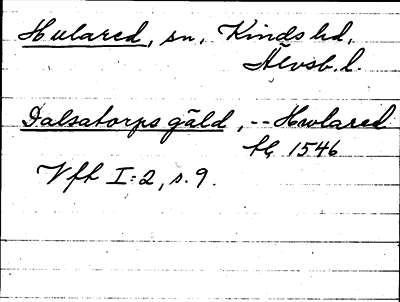 Hulared, sn, Kinds hd,
Älvsb. l.
Dalsatorps gäld, -- Hwlared
1546
Vfh I:2, s. 9.